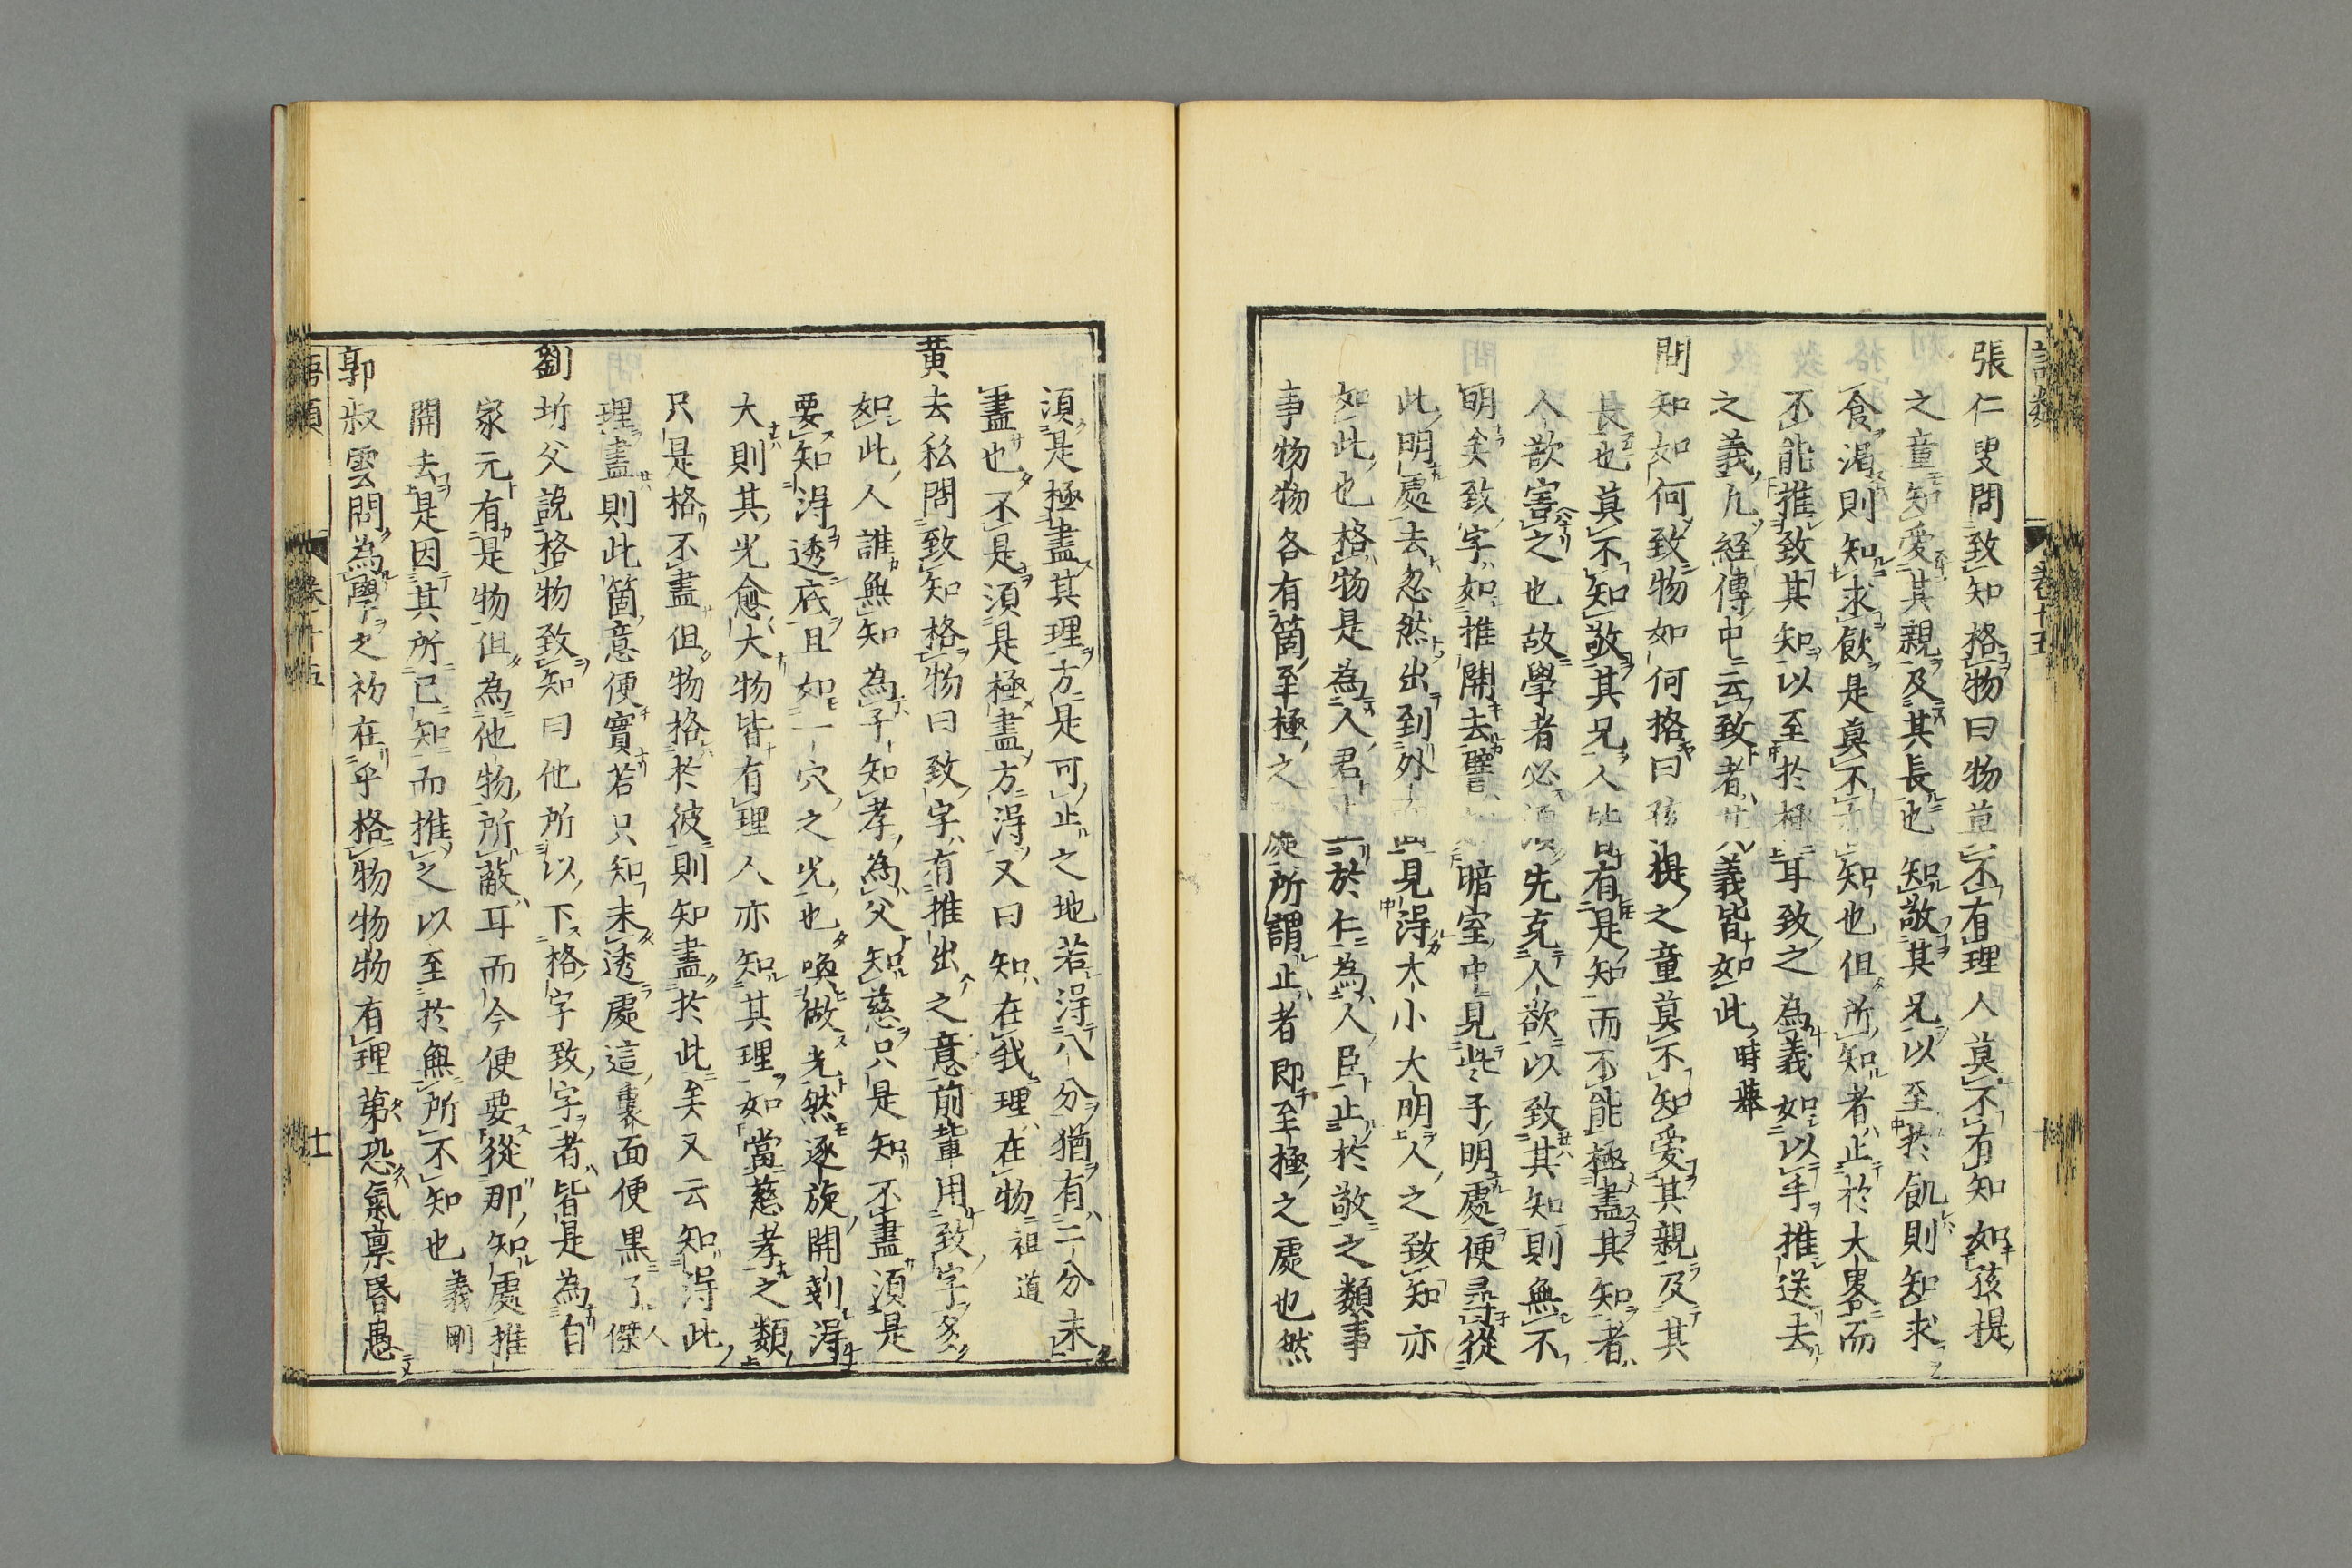 張仁叟問致知格物曰物莫不有理人莫不有知如孩提
之童知愛其親及其長也知敬其兄以至於飢則知求
食渴則知求飲是莫不有知也但所知者止於大畧而
不能推致其知以至於極耳致之為義如以手推送去
之義凡經傳中云致者其義皆如此時舉
問知如何致物如何格曰孩提之童莫不知愛其親及其
長也莫不知敬其兄人皆有是知而不能極盡其知者
人欲害之也故學者必須先克人欲以致其知則無不
明矣致字如推開去譬如暗室中見些子明處便尋從
此明處去忽然出到外面見得大小大明人之致知亦
如此也格物是為人君止於仁為人臣止於敬之類事
事物物各有箇至極之處所謂止者即至極之處也然
卷十五
須是極盡其理方是可止之地若得八分猶有二分未
盡也不是須是極盡方得又曰知在我理在物祖道
黃去私問致知格物曰致字有推出之意前輩用致字多
如此人誰無知為子知孝為父知慈只是知不盡須是
要知得透底且如一穴之光也喚做光然逐旋開剗得
大則其光愈大物皆有理人亦知其理如當慈孝之類
只是格不盡但物格於彼則知盡於此矣又云知得此
理盡則此箇意便實若只知未透處這裏面便黑了人傑
劉圻父說格物致知曰他所以下格字致字者皆是為自
家元有是物但為他物所蔽耳而今便要從那知處推
開去是因其所已知而推之以至於無所不知也義剛
郭叔雲問為學之初在乎格物物物有理第恐氣稟昏愚